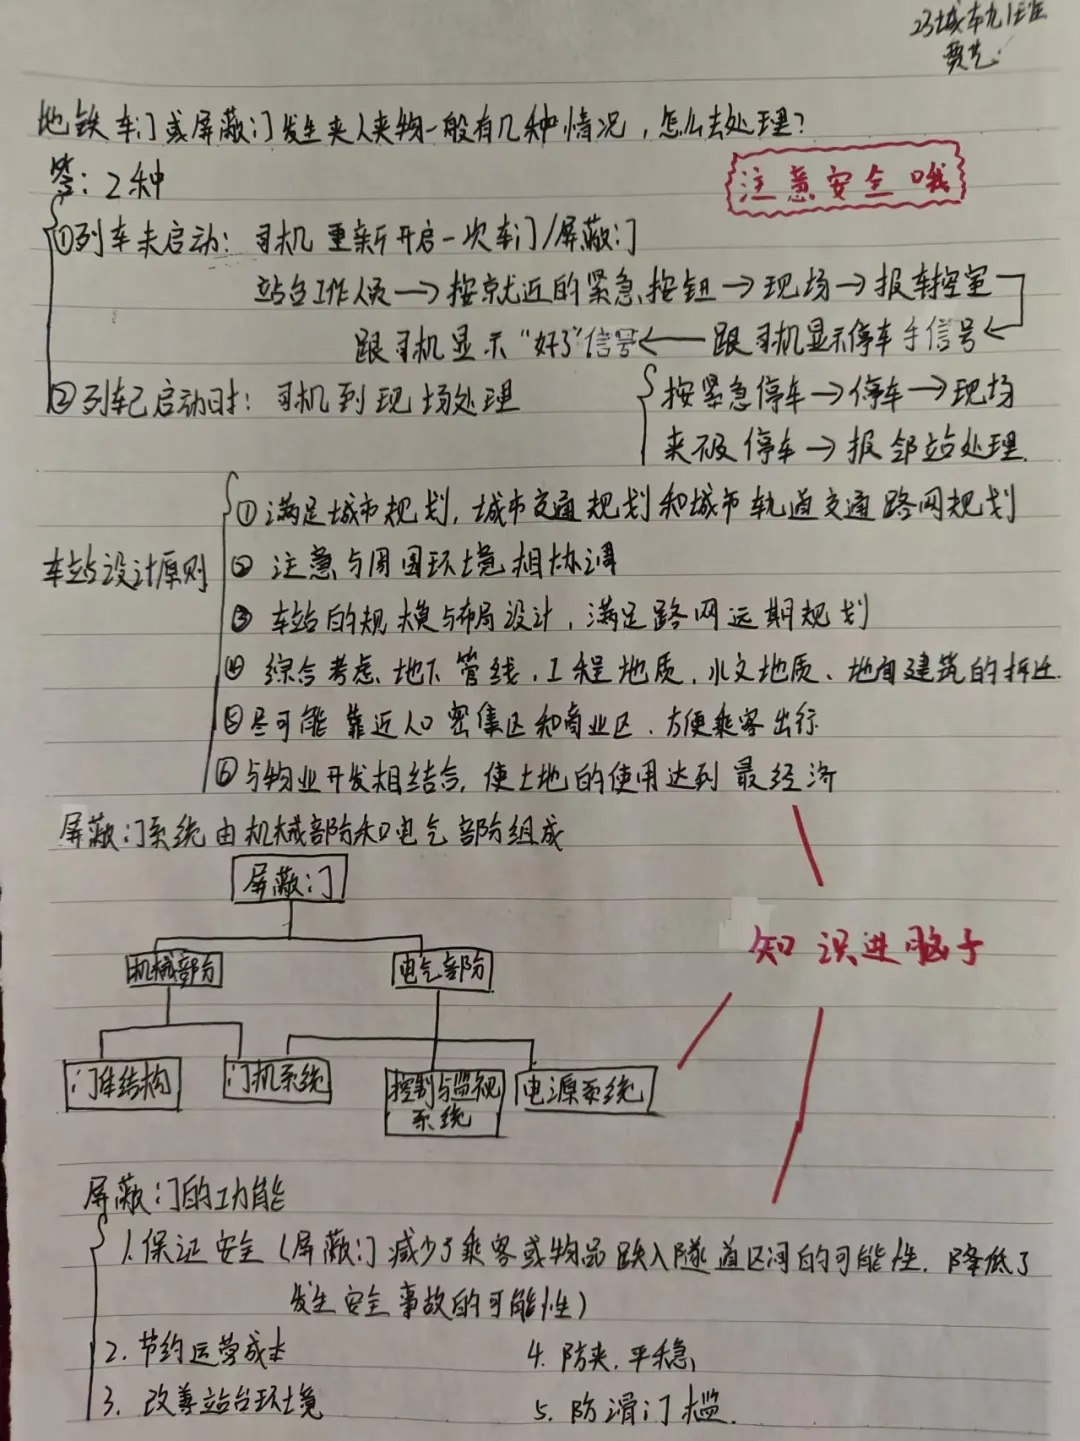 23城本九1班
贾艺
地铁车门或屏蔽门发生夹人夹物一般有几种情况，怎么去处理？
答：2种
注意安全哦
①列车未启动：司机重新开启一次车门/屏蔽门
站台工作人员→按就近的紧急按钮→现场→报车控室
跟司机显示“好了”信号←跟司机显示停车手信号←
②列车已启动时：司机到现场处理
按紧急停车→停车→现场
未及停车→报邻站处理.
车站设计原则
①满足城市规划，城市交通规划和城市轨道交通路网规划
② 注意与周围环境相协调
③ 车站的规模与布局设计，满足路网远期规划
④ 综合考虑地下管线、工程地质，水文地质、地面建筑的拆迁.
⑤尽可能靠近人口密集区和商业区、方便乘客出行
⑥与物业开发相结合，使土地的使用达到最经济
屏蔽门系统由机械部份和电气部份组成
屏蔽门
机械部份
电气部份
知识进脑子
门体结构
门机系统
控制与监视系统
电源系统
屏蔽门的功能
1.保证安全（屏蔽门减少了乘客或物品跌入隧道区间的可能性，降低了
发生安全事故的可能性）
2. 节约运营成本
4. 防夹，平稳
3. 改善站台环境
5. 防滑门槛.